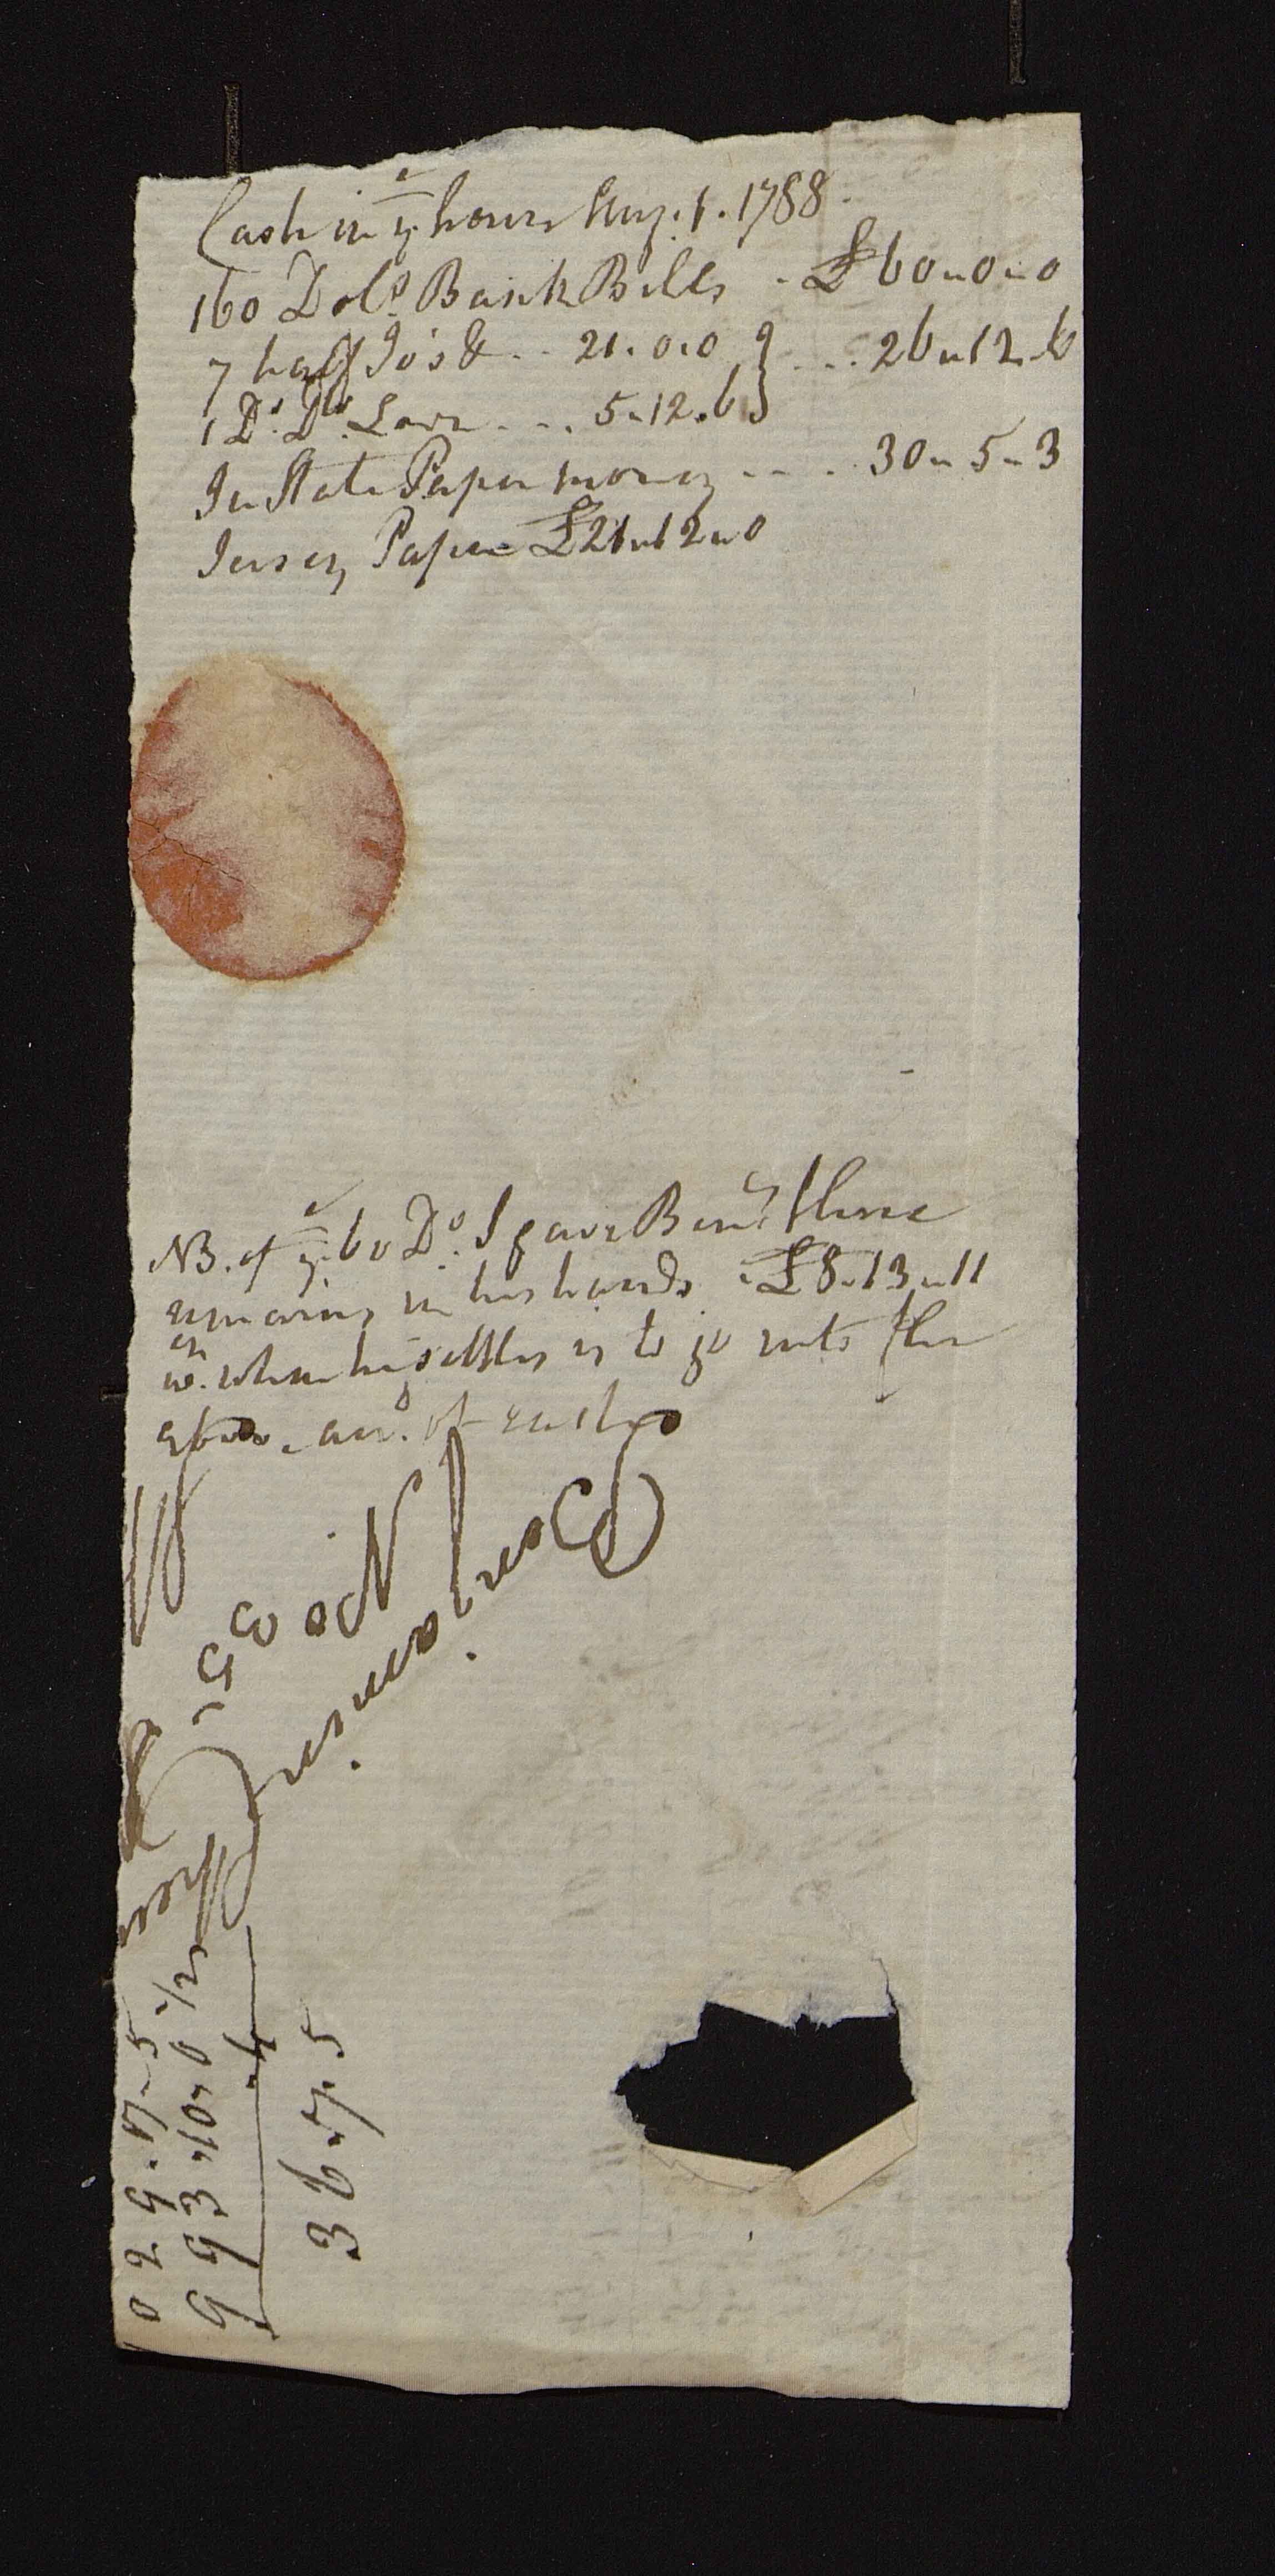 Cash in ye house Aug. 1. 1788.
160 Dols. Bank Bills - £60-0-0
7 half Jo's & .. 21.0.0 } ... 26-12-6
1 Do. Do. .... 5-12.6 }
In State Paper money - - - . 30-5-3
Jersey Paper £21-12-0
NB. of ye 60 Do. I gave Benj. there
remains in his hands - £8-13-11
wch. when he settles is to go into the
above acc. of cash
No 35
029.17-5
993-10-0 1/2
36-7.5